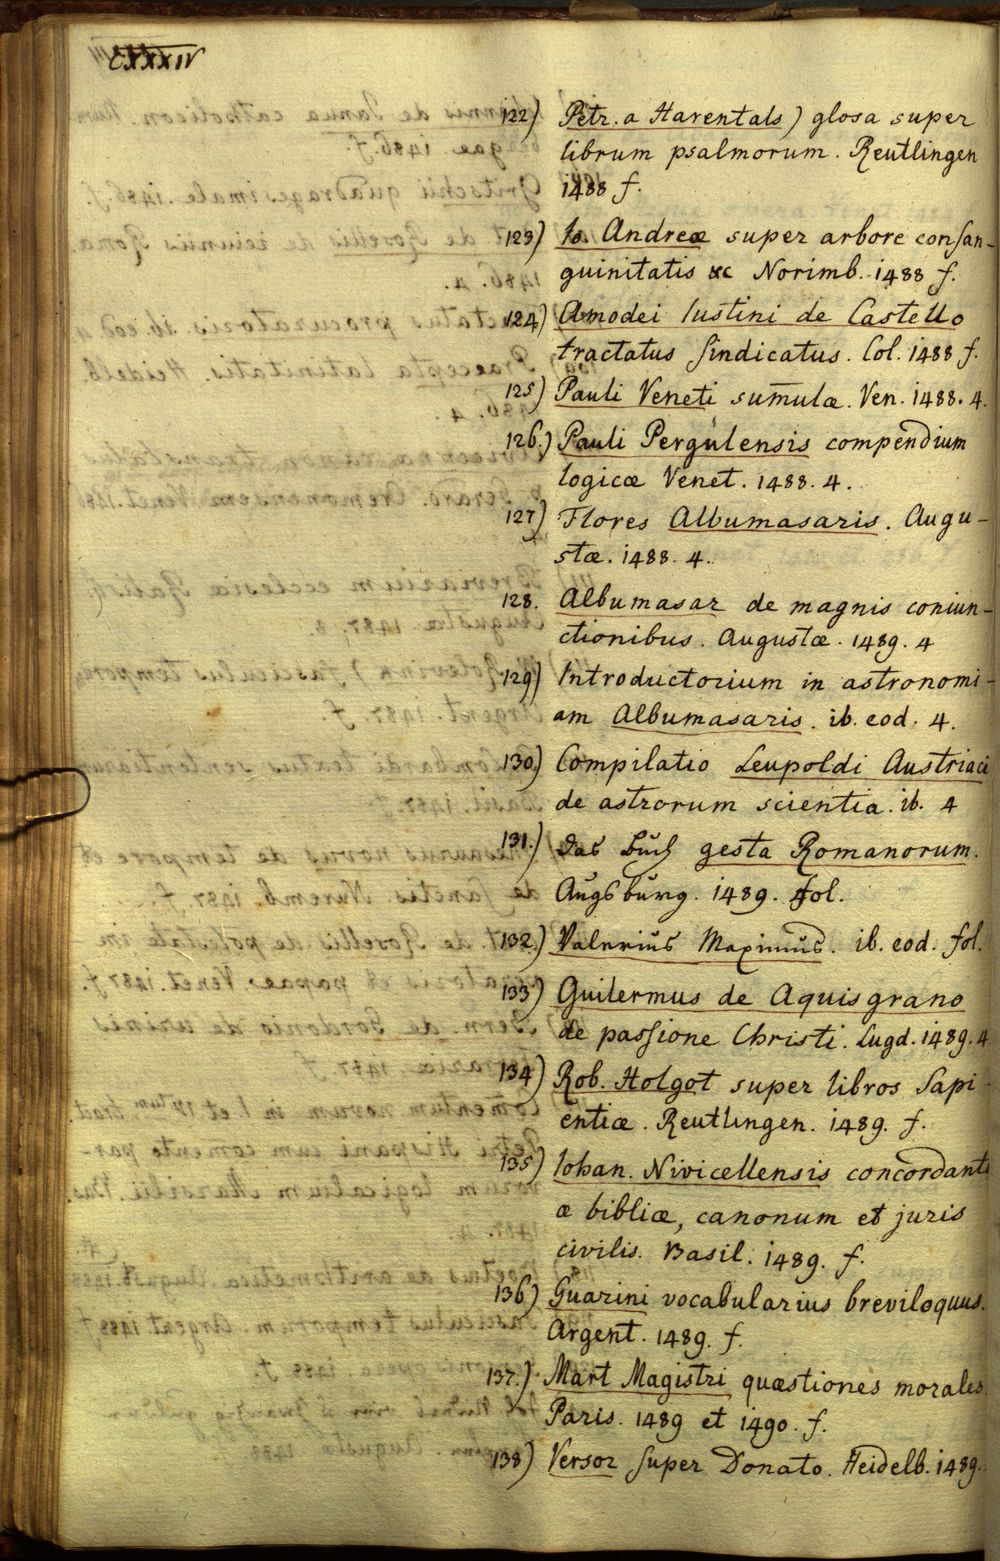 CXXXIV
122) Petr. a Harentals) glosa super
librum psalmorum. Reutlingen
1488 f.
123) Io. Andreæ super arbore consan-
guinitatis &c Norimb. 1488 f.
124) Amodei Iustini de Castello
tractatus sindicatus. Col. 1488 f.
125) Pauli Veneti sum̄ulæ. Ven. 1488. 4.
126.) Pauli Pergulensis compendium
logicæ Venet. 1488. 4.
127) Flores Albumasaris. Augu-
stæ. 1488. 4.
128. Albumasar de magnis coniun-
ctionibus. Augustæ. 1489. 4
129) Introductorium in astronomi-
am Albumasaris. ib. eod. 4.
130) Compilatio Leupoldi Austriaci
de astrorum scientia. ib. 4
131.) das buch gesta Romanorum.
Augsburg. 1489. fol.
132.) Valerius Maximus. ib. eod. fol.
133) Guilermus de Aquisgrano
de passione Christi. Lugd. 1489. 4
134) Rob. Holgot super libros Sapi-
entiæ. Reutlingen. 1489. f.
135) Iohan. Nivicellensis concordanti
æ bibliæ, canonum et juris
civilis. Basil. 1489. f.
136) Guarini vocabularius breviloquus.
Argent. 1489. f.
137.) Mart Magistri quæstiones morales.
Paris. 1489 et 1490. f.
138) Versor super Donato. Heidelb. 1489.